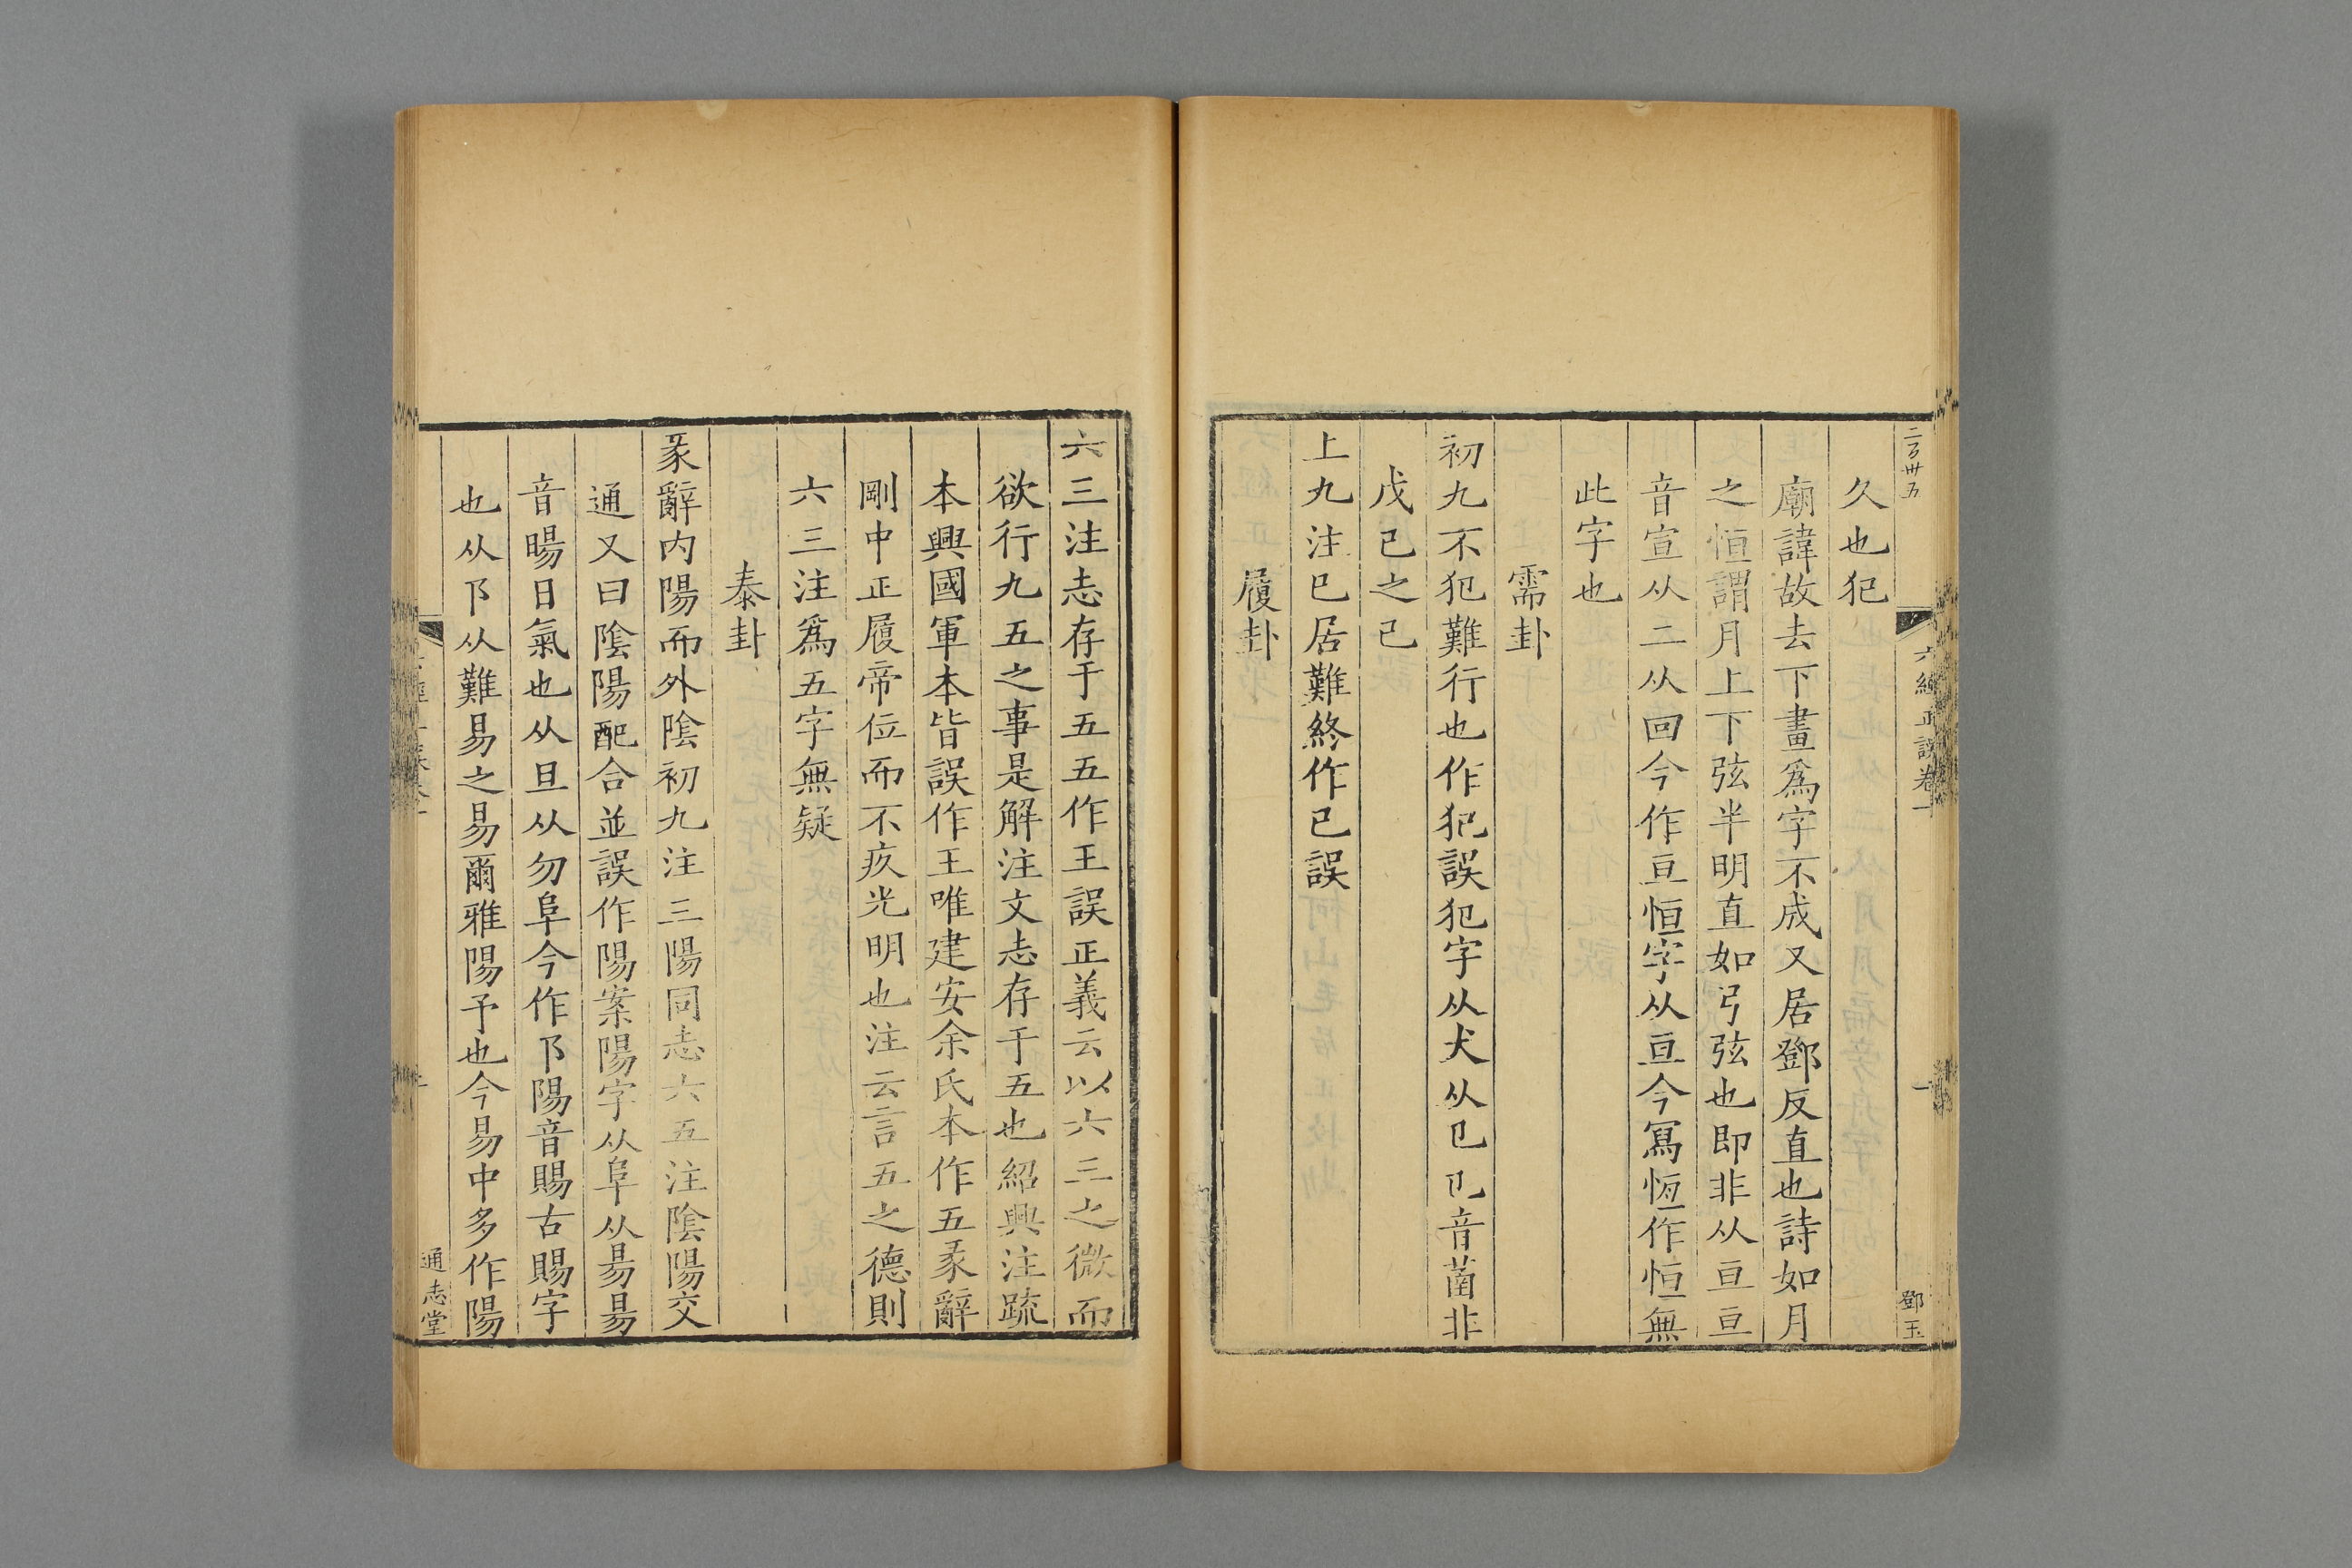 二百卅五
六經正誤卷一
一
鄧玉
久也犯
廟諱故去下畫爲字不成又居鄧反直也詩如月
之恒謂月上下弦半明直如弓弦也即非从亘亘
音宣从二从回今作亘恒字从亘今冩恆作恒無
此字也
需卦
初九不犯難行也作犯誤犯字从犬从㔾㔾音菡非
戊己之己
上九注巳居難終作已誤
履卦
六三注志存于五五作王誤正義云以六三之微而
欲行九五之事是解注文志存于五也紹興注䟽
本興國軍本皆誤作王唯建安余氏本作五彖辭
剛中正履帝位而不疚光明也注云言五之德則
六三注爲五字無疑
泰卦
彖辭内陽而外陰初九注三陽同志六五注陰陽交
通又曰陰陽配合並誤作陽案陽字从阜从昜昜
音暘日氣也从旦从勿阜今作阝陽音賜古賜字
也从阝从難易之易爾雅陽予也今易中多作陽
通志堂